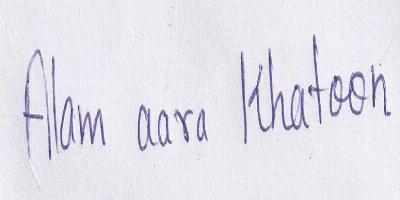 Alam aara Khatoon